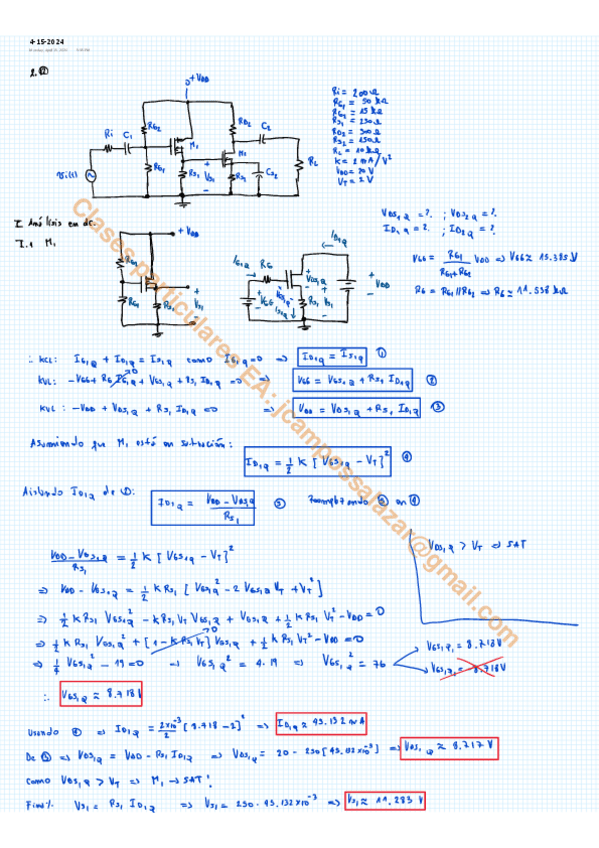 4-15-2024
2.
+VDD
Ri C1 RG2 M1 RD2 C2
RG1 RS1 VS1 M2 RS2 CS2 RL
vi(t)
Ri = 200Ω
RG1 = 50 kΩ
RG2 = 15 kΩ
RS1 = 250Ω
RD2 = 300Ω
RS2 = 150Ω
RL = 10kΩ
K = 2 mA/V²
VDD = 20 V
VT = 2 V
VDS1Q = ?. ; VDS2Q = ?.
ID1Q = ?. ; ID2Q = ?.
I. Análisis en dc.
I.1 M1
+VDD
RG2
RG1 RS1 VS1
IG1Q RG ID1Q
VGG VGS1Q VDS1Q RS1 VS1 VDD
IS1Q
VGG = RG1/(RG1+RG2) VDD => VGG ≈ 15.385V
RG = RG1//RG2 => RG ≈ 11.538 kΩ
∴ KCL: IG1Q + ID1Q = IS1Q como IG1Q=0 => ID1Q = IS1Q ①
KVL: -VGG + RG IG1Q + VGS1Q + RS1 ID1Q = 0 => VGG = VGS1Q + RS1 ID1Q ②
KVL: -VDD + VDS1Q + RS1 ID1Q = 0 => VDD = VDS1Q + RS1 ID1Q ③
Asumiendo que M1 está en saturación: ID1Q = 1/2 K [VGS1Q - VT]² ④
Aislando ID1Q de ③: ID1Q = (VDD - VDS1Q)/RS1 ⑤ Reemplazando ⑤ en ④
(VDD - VDS1Q)/RS1 = 1/2 K [VGS1Q - VT]²
VDS1Q > VT => SAT
=> VDD - VDS1Q = 1/2 K RS1 [VGS1Q² - 2 VGS1Q VT + VT²]
=> 1/2 K RS1 VGS1Q² - K RS1 VT VGS1Q + VDS1Q + 1/2 K RS1 VT² - VDD = 0
=> 1/2 K RS1 VGS1Q² + [1 - K RS1 VT] VGS1Q + 1/2 K RS1 VT² - VDD = 0
=> 1/4 VGS1Q² - 19 = 0 => VGS1Q² = 4·19 => VGS1Q² = 76
VGS1Q1 = 8.718V
VGS1Q2 = -8.718V
∴ VGS1Q ≈ 8.718V
Usando ④ => ID1Q = 2x10⁻³/2 [8.718 - 2]² => ID1Q ≈ 45.132 mA
De ③ => VDS1Q = VDD - RS1 ID1Q => VDS1Q = 20 - 250[45.132x10⁻³] => VDS1Q ≈ 8.717 V
Como VDS1Q > VT => M1 → SAT!
Final%. VS1 = RS1 ID1Q => VS1 = 250 · 45.132x10⁻³ => VS1 ≈ 11.283 V
Clases particulares EA: jcampossalazar@gmail.com